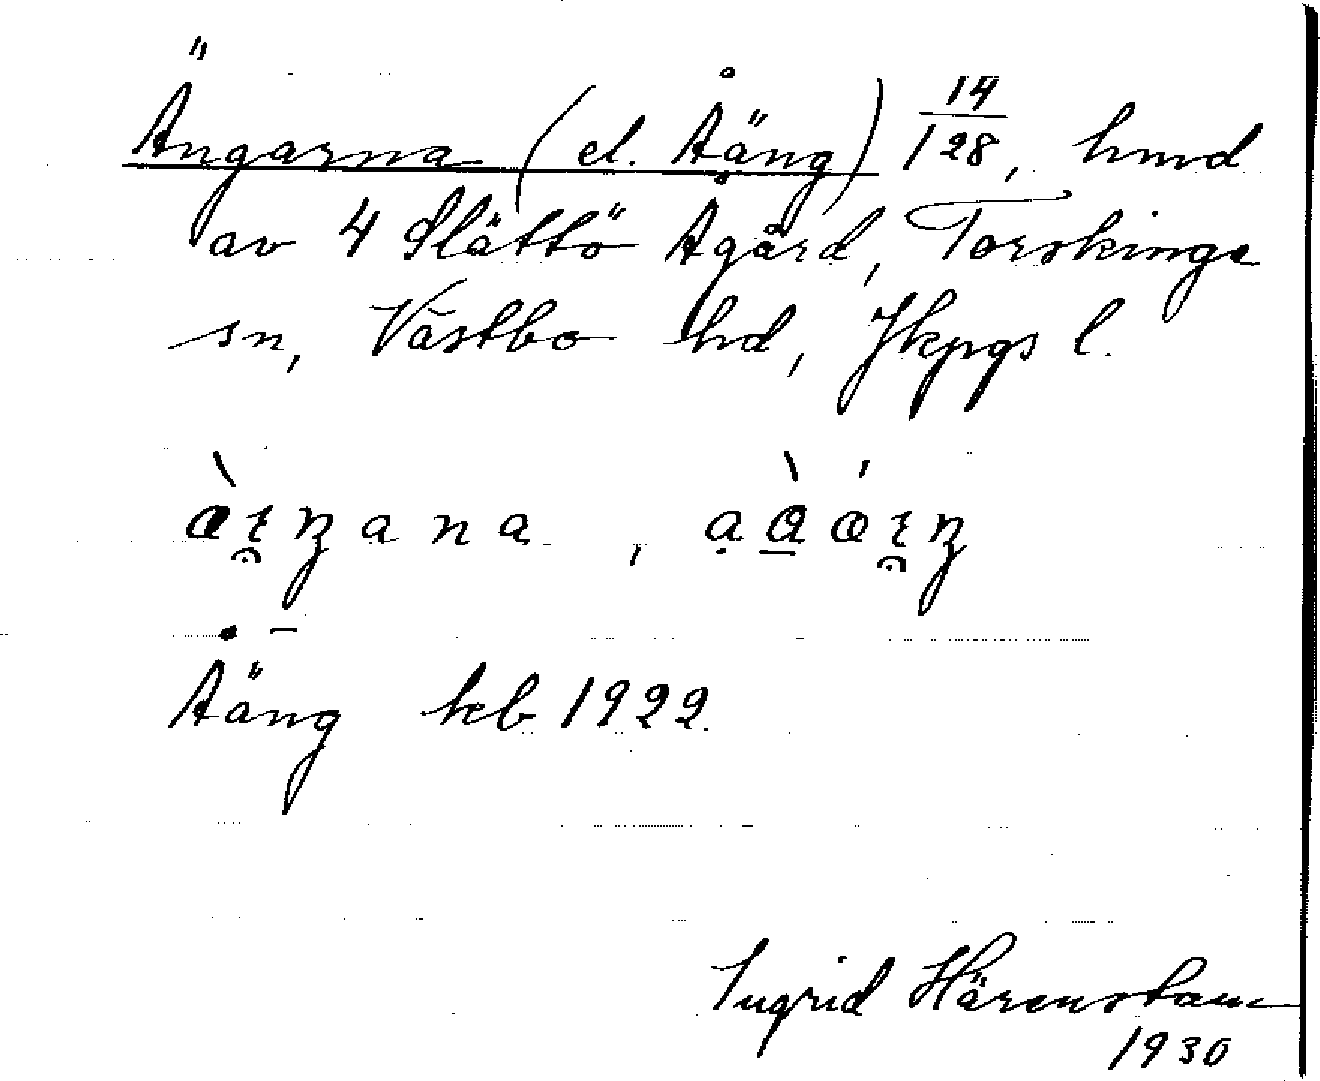 Ängarna (el. Åäng) 14/128, hmd
av 4 Slättö Ågård, Torskinge
sn, Västbo hd, Jkpgs l.
Åäng kb 1922.
Ingrid Härenstam
1930